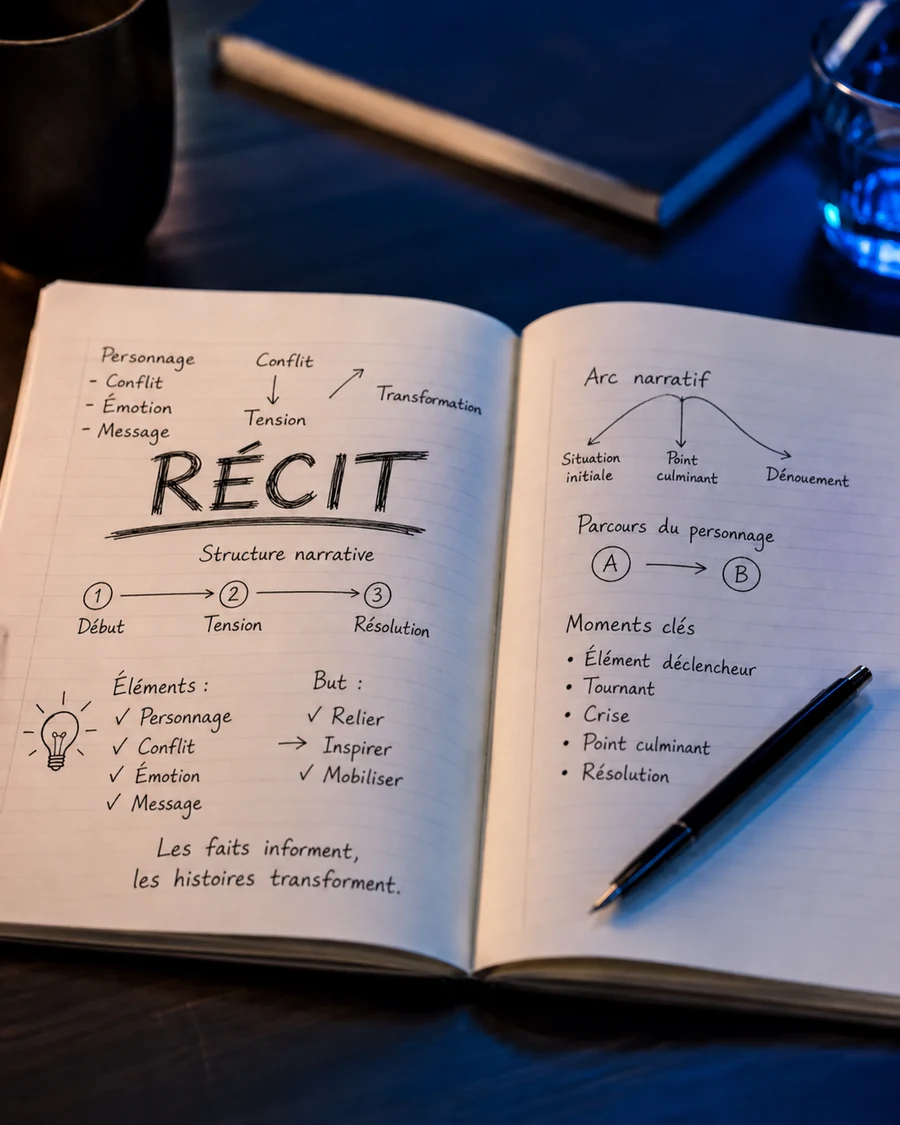 Personnage
- Conflit
- Émotion
- Message
Conflit
Tension
Transformation
RÉCIT
Structure narrative
1 2 3
Début Tension Résolution
Éléments :
✓ Personnage
✓ Conflit
✓ Émotion
✓ Message
But :
✓ Relier
→ Inspirer
✓ Mobiliser
Les faits informent,
les histoires transforment.
Arc narratif
Situation
initiale
Point
culminant
Dénouement
Parcours du personnage
A → B
Moments clés
• Élément déclencheur
• Tournant
• Crise
• Point culminant
• Résolution